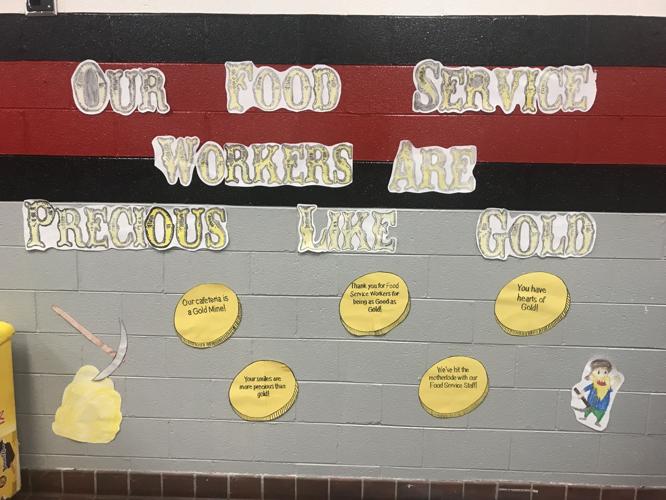 Our Food Service
Workers Are
Precious Like Gold
Our cafeteria is
a Gold Mine!
Thank you for Food
Service Workers for
being as Good as
Gold!
You have
hearts of
Gold!
Your smiles are
more precious than
gold!
We've hit the
motherlode with our
Food Service Staff!